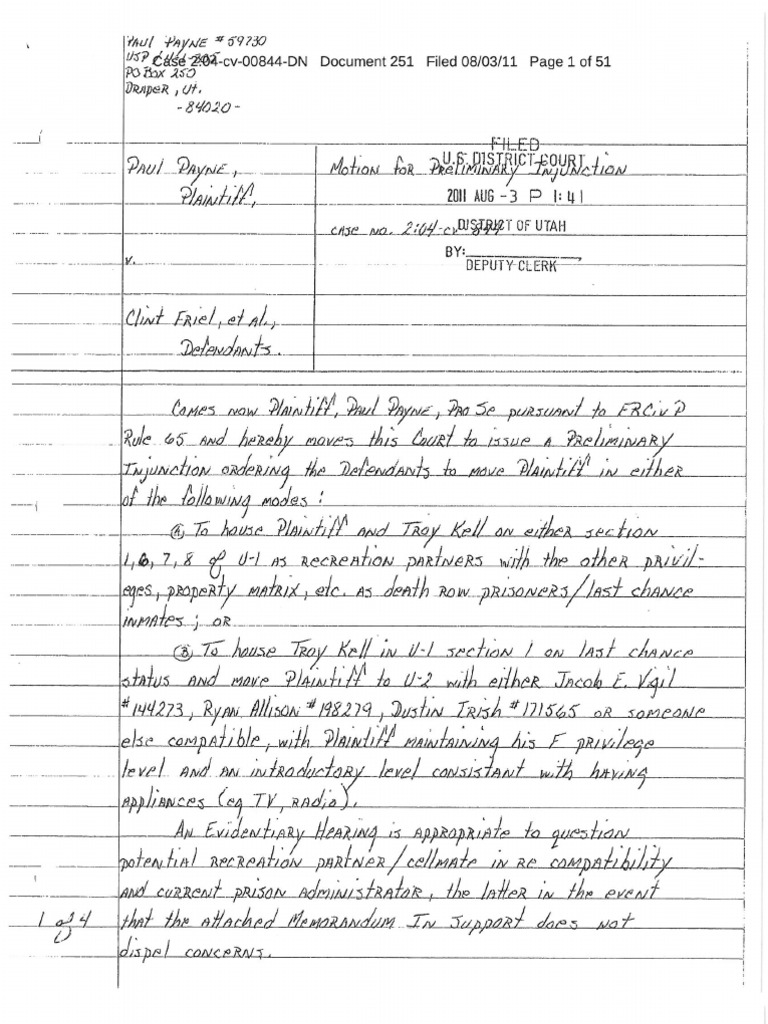 PAUL PAYNE #59730
USP
Case 2:04-cv-00844-DN Document 251 Filed 08/03/11 Page 1 of 51
PO BOX 250
DRAPER, Ut.
-84020-
FILED
U.S. DISTRICT COURT
2011 AUG -3 P 1:41
DISTRICT OF UTAH
BY:
DEPUTY CLERK
PAUL PAYNE,
Plaintiff,
v.
Clint FRiel, et al.,
Defendants.
Motion for Preliminary Injunction
case no. 2:04-cv-844
Comes now Plaintiff, Paul Payne, Pro Se pursuant to FRCivP
Rule 65 and hereby moves this Court to issue a Preliminary
Injunction ordering the Defendants to move Plaintiff in either
of the following modes:
(A) To house Plaintiff and Troy Kell on either section
1, 6, 7, 8 of U-1 as recreation partners with the other privil-
eges, property matrix, etc. as death row prisoners/last chance
inmates; or
(B) To house Troy Kell in U-1 section 1 on last chance
status and move Plaintiff to U-2 with either Jacob E. Vigil
#144273, Ryan Allison #198279, Dustin Irish #171565 or someone
else compatible, with Plaintiff maintaining his F privilege
level and an introductory level consistant with having
appliances (eg TV, radio).
An Evidentiary Hearing is appropriate to question
potential recreation partner/cellmate in re compatibility
and current prison administrator, the latter in the event
that the attached Memorandum In Support does not
dispel concerns.
1 of 4